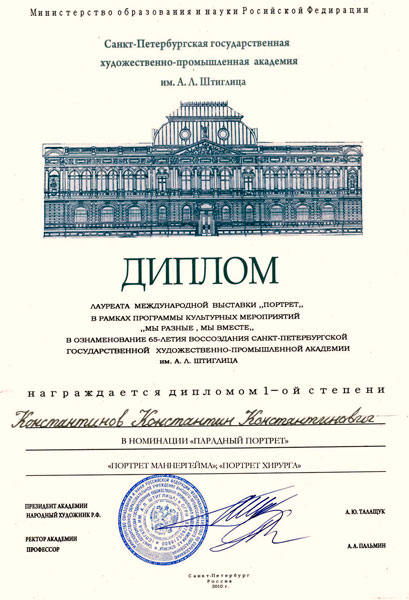 Министерство образования и науки Росийской Федерации
Санкт-Петербургская государственная
художественно-промышленная академия
им. А. Л. Штиглица
ДИПЛОМ
ЛАУРЕАТА МЕЖДУНАРОДНОЙ ВЫСТАВКИ „ПОРТРЕТ„
В РАМКАХ ПРОГРАММЫ КУЛЬТУРНЫХ МЕРОПРИЯТИЙ
„МЫ РАЗНЫЕ , МЫ ВМЕСТЕ„
В ОЗНАМЕНОВАНИЕ 65-ЛЕТИЯ ВОССОЗДАНИЯ САНКТ-ПЕТЕРБУРГСКОЙ
ГОСУДАРСТВЕННОЙ ХУДОЖЕСТВЕННО-ПРОМЫШЛЕННОЙ АКАДЕМИИ
им. А. Л. ШТИГЛИЦА
награждается дипломом 1-ой степени
Константинов Константин Константинович
В НОМИНАЦИИ «ПАРАДНЫЙ ПОРТРЕТ»
«ПОРТРЕТ МАННЕРГЕЙМА»; «ПОРТРЕТ ХИРУРГА»
ПРЕЗИДЕНТ АКАДЕМИИ
НАРОДНЫЙ ХУДОЖНИК Р.Ф.
А. Ю. ТАЛАЩУК
РЕКТОР АКАДЕМИИ
ПРОФЕССОР
А.А. ПАЛЬМИН
Санкт-Петербург
Россия
2010 г.